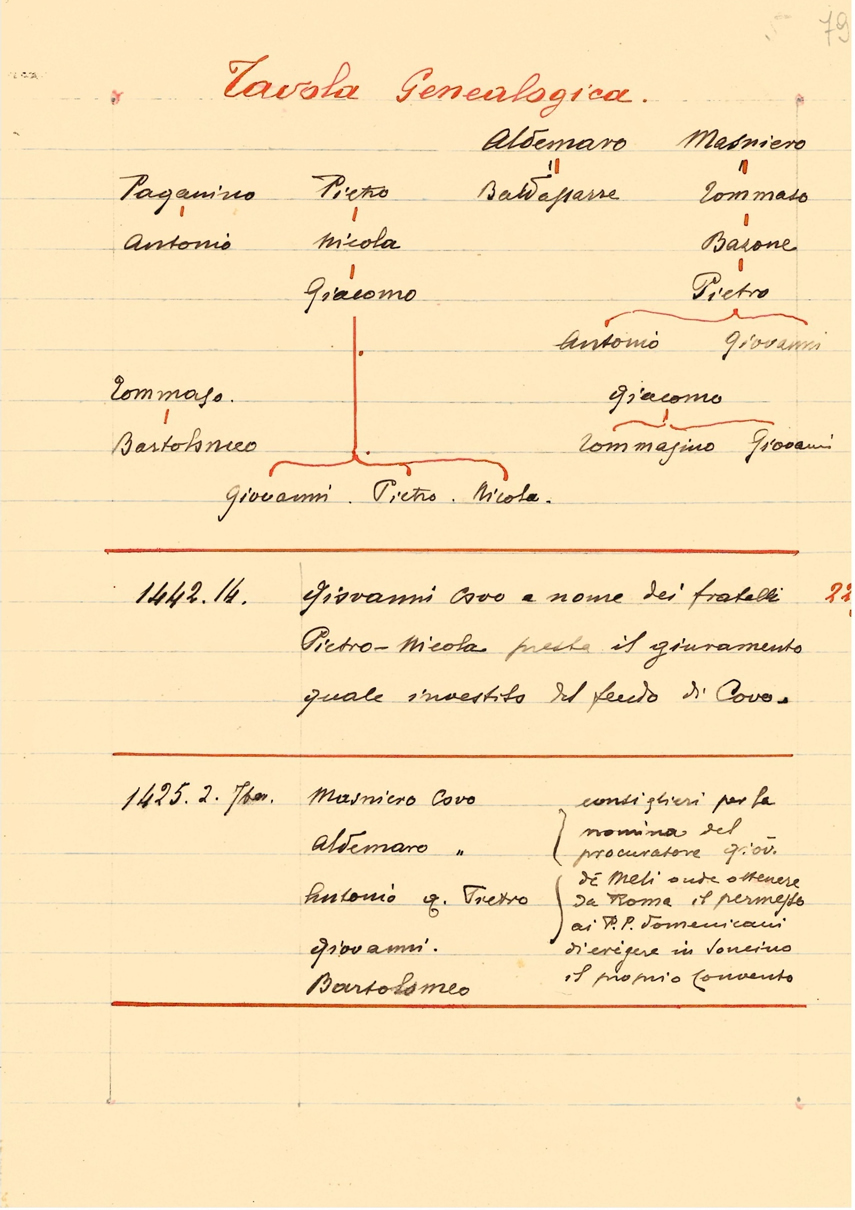 79
Tavola Genealogica.
Aldemaro Masniero
Paganino Pietro Baldassarre Tommaso
Antonio Nicola Basone
Giacomo Pietro
Antonio Giovanni
Tommaso. Giacomo
Bartolomeo Tommasino Giovanni
Giovanni . Pietro . Nicola.
1442.14. Giovanni Covo a nome dei fratelli 22
Pietro - Nicola presta il giuramento
quale investito del feudo di Covo.
1425. 2. 7bre. Masniero Covo consiglieri per la
nomina del
Aldemaro " procuratore Giov.
de Meli onde ottenere
Antonio q. Pietro da Roma il permesso
ai P.P. domenicani
Giovanni. di erigere in Soncino
Bartolomeo il proprio convento